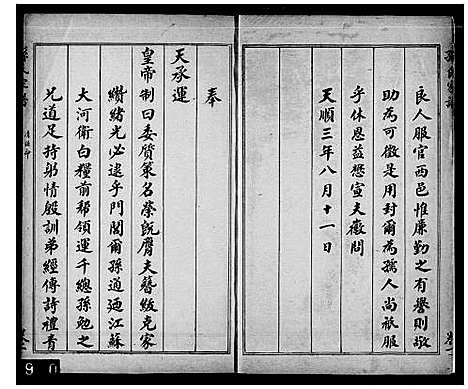 良人服官西邑惟廉勤之有譽則敬
助為可徵是用封爾為孺人尚祇服
乎休恩益懋宣夫徽問
天順三年八月十一日
奉
天承運
皇帝制曰委贊策名榮既膺夫簪紱克家
纘緒光必逮乎門閭爾孫道廼江蘇
大河衛白糧前幫領運千總孫勉之
兄道足持躬情殷訓弟經傳詩禮青
9 0